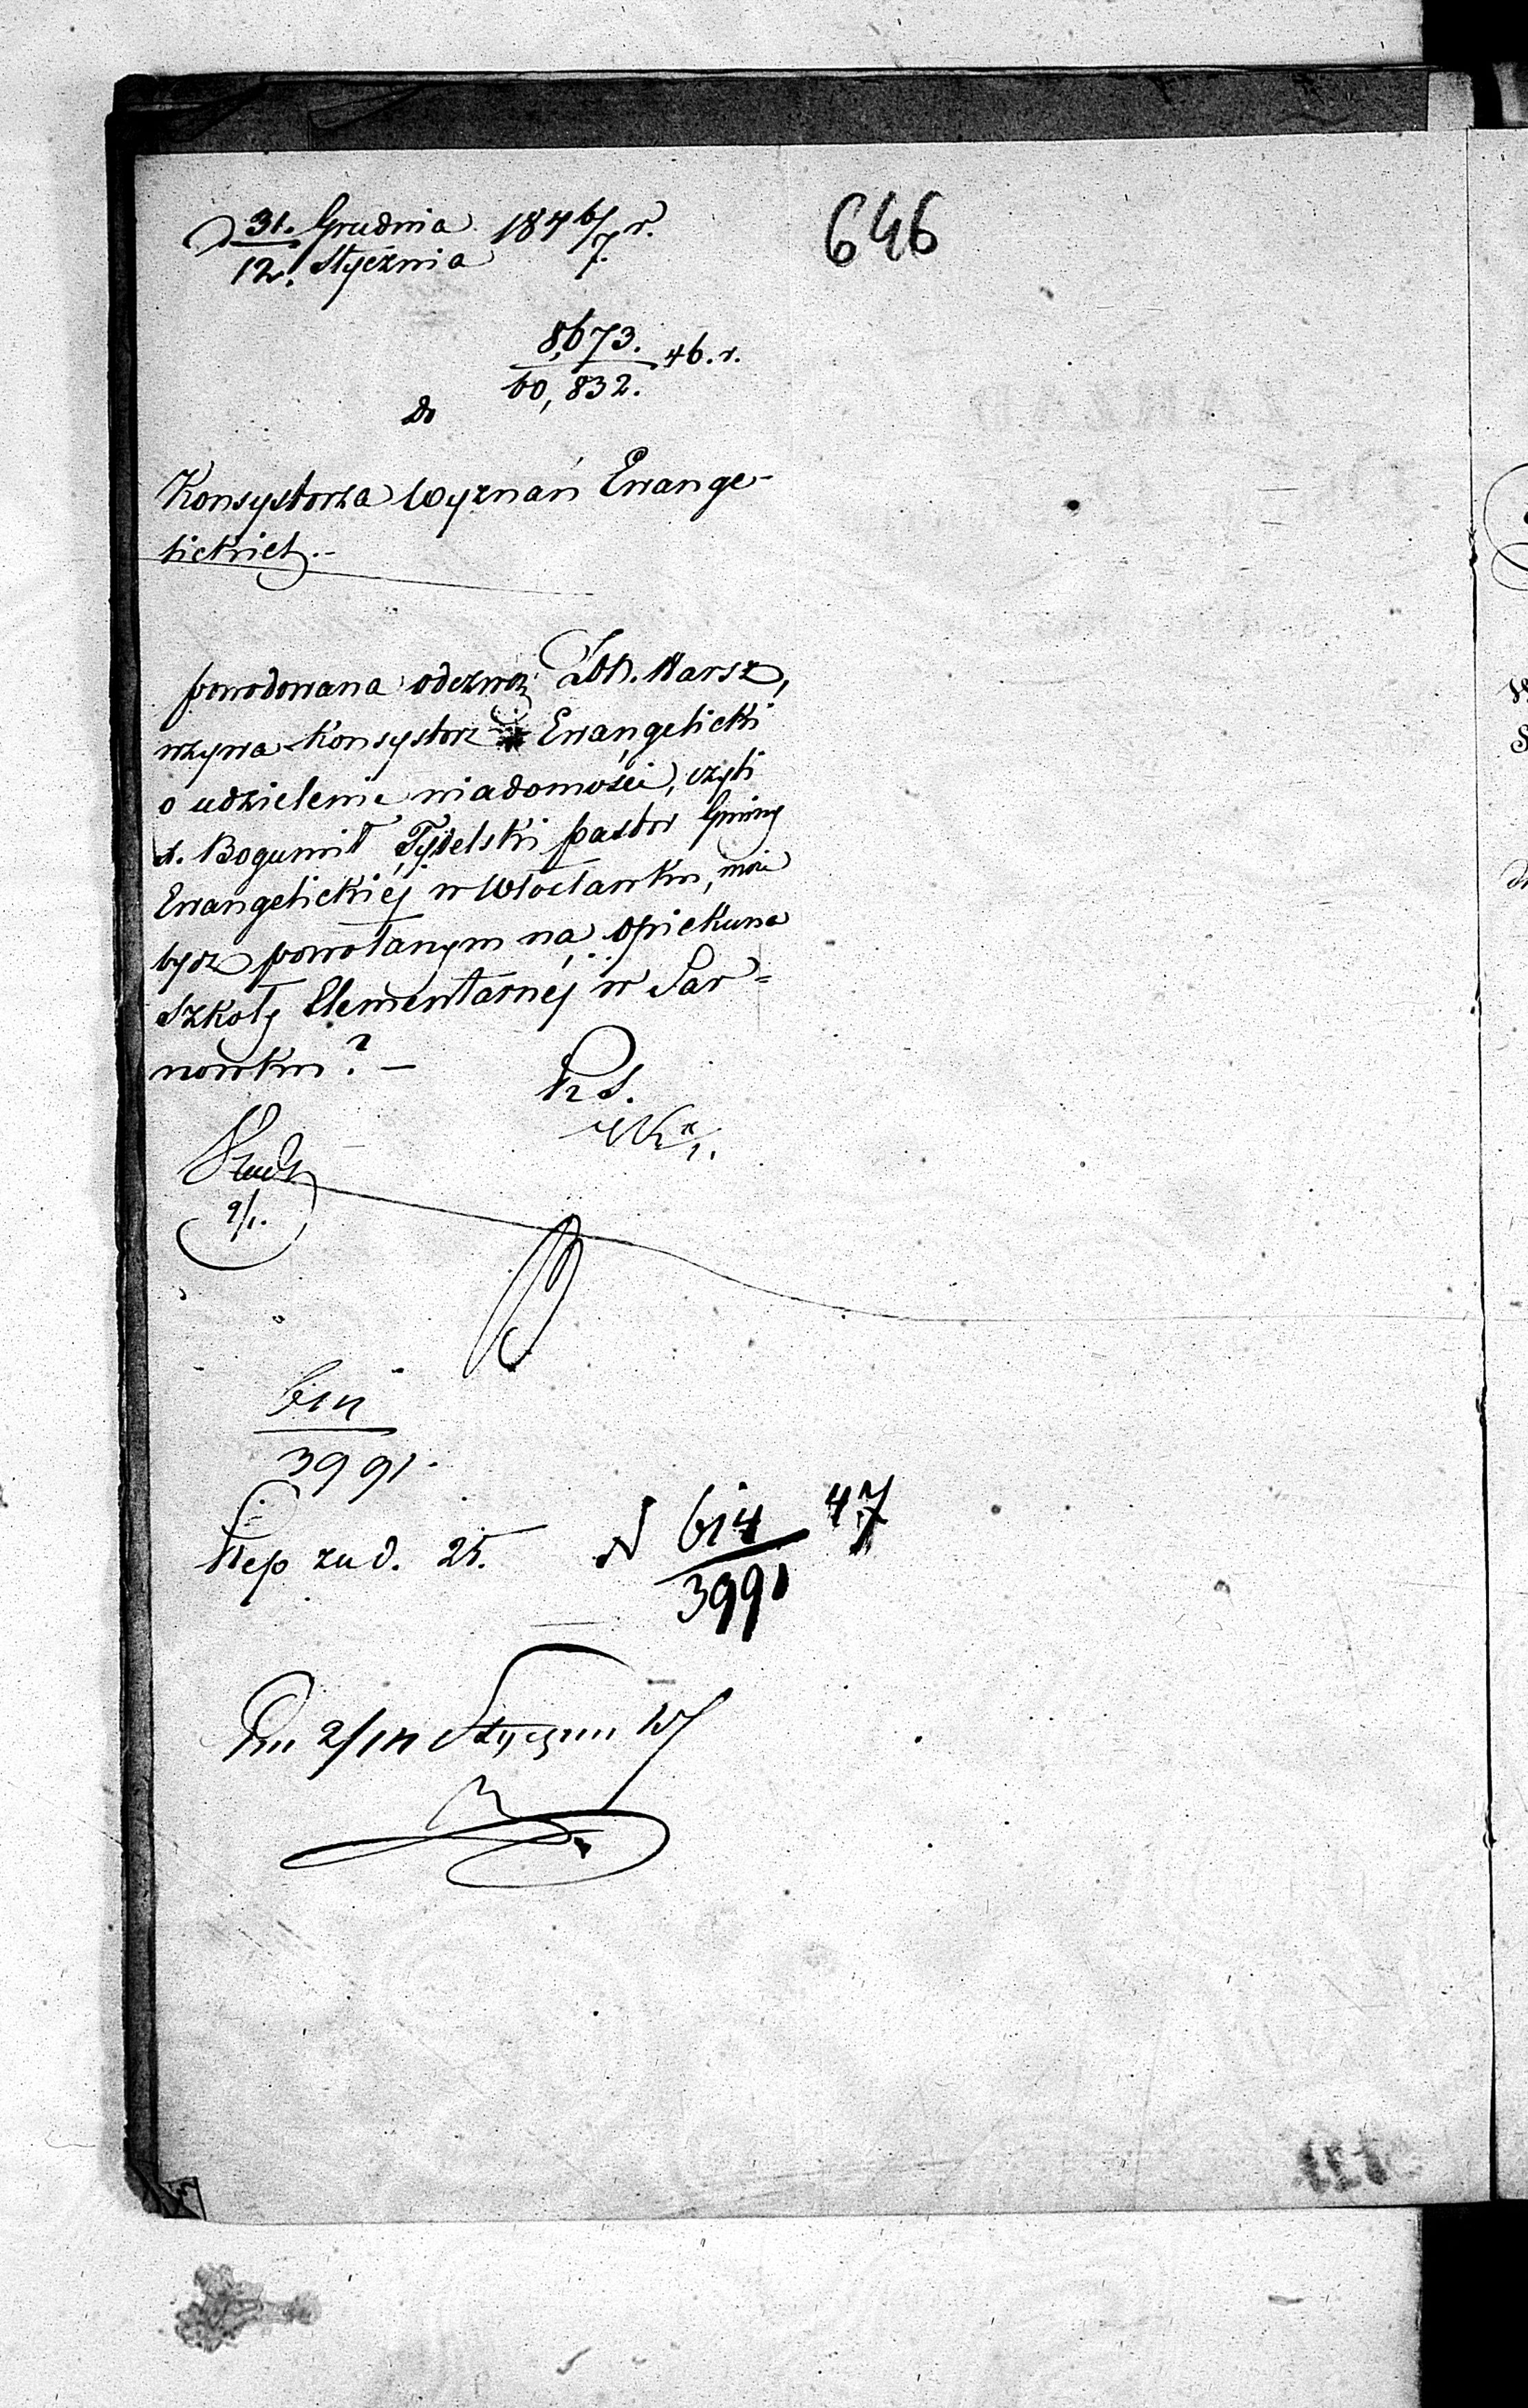 646
d 31. Grudnia 1846/7 r.
12. Stycznia
8,673. 46. r.
60,832.
do
Konsystorza Wyznań Ewange-
lickich.-
powodowana odezwą
wzywa Konsystorz Ewangelicki
o udzielenie wiadomości, czyli
X. Bogumił Tydelski pastor Gminy
Ewangelickiéj w Włocławku, może
bydz powołanym na opiekuna
szkoły Elementarnéj w Sar=
nowku? —
9/1.
614
3991.
25. N 614 47
3991
Dn 2/14 Stycznia 47